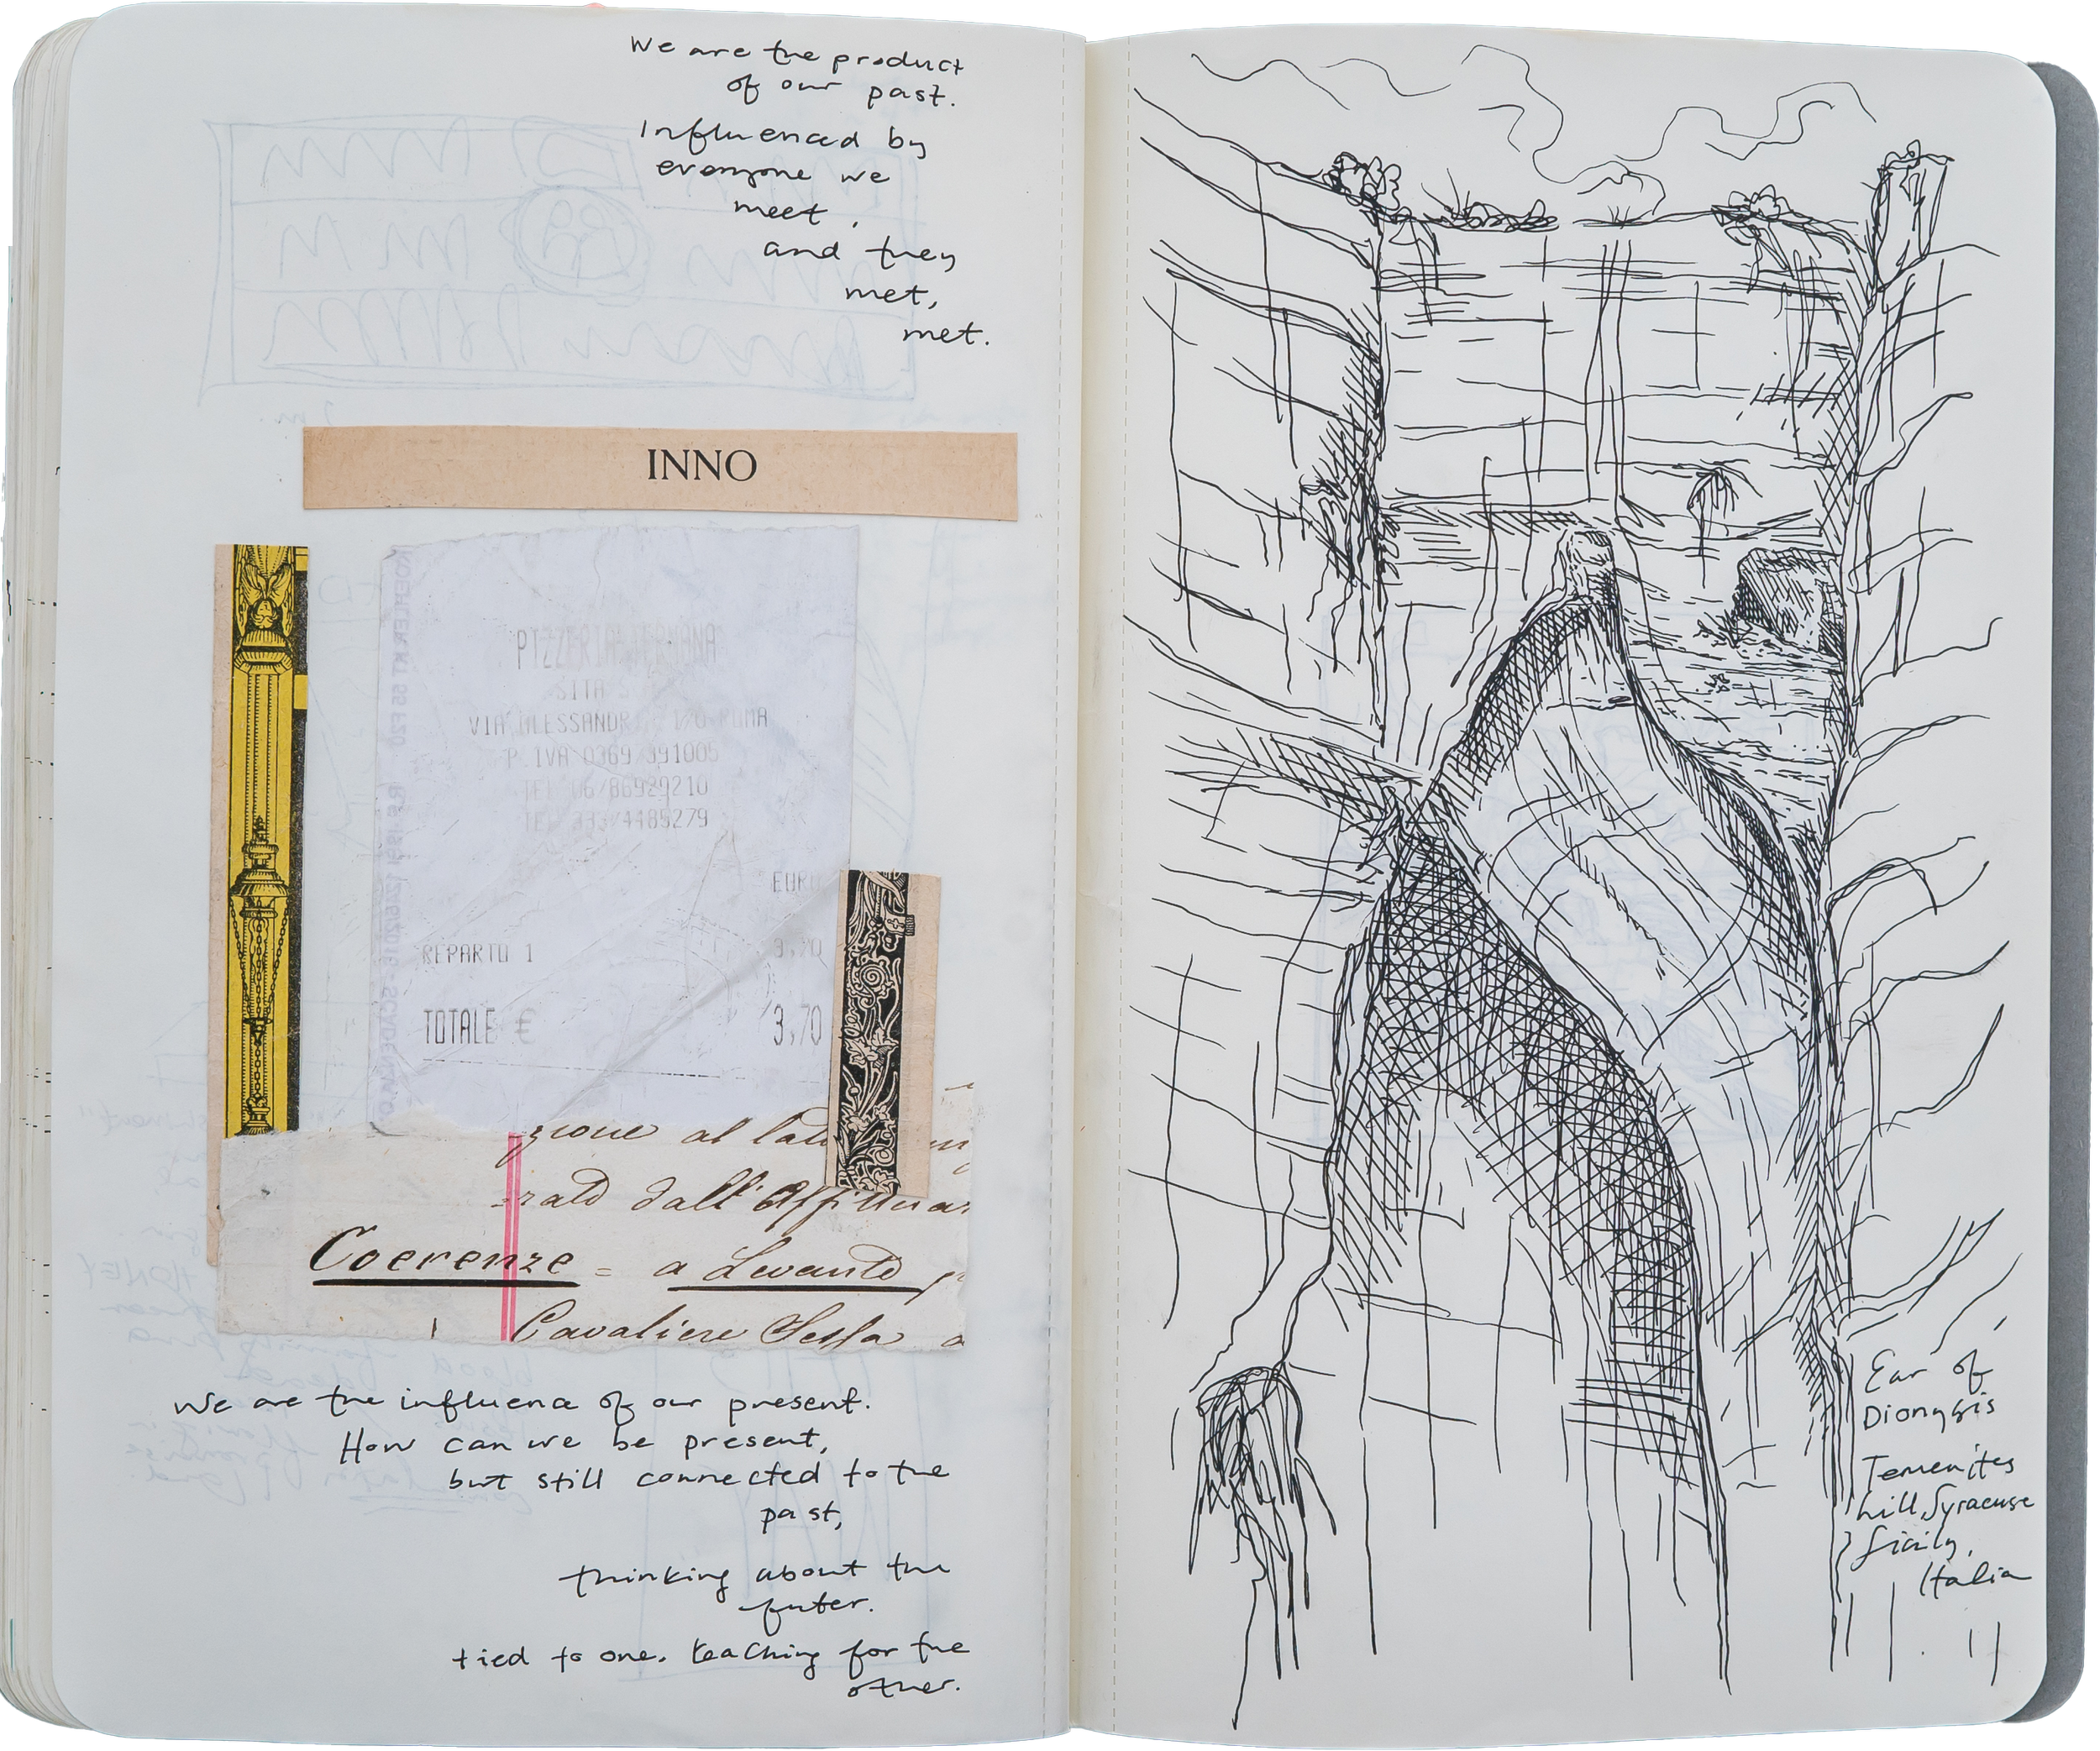 We are the product
of our past.
Influenced by
everyone we
meet,
and they
met,
met.
INNO
PIZZERIA
VIA ALESSANDRIA ROMA
P. IVA
TEL 06/86989210
TEL
EURO
REPARTO 1 3,70
TOTALE € 3,70
zione al
dall'
Coerenze = a Levante
Cavaliere Sessa a
We are the influence of our present.
How can we be present,
but still connected to the
past,
thinking about the
futer.
tied to one. teaching for the
other.
Ear of
Dionysis
Temenites
hill, Syracuse
Sicily,
Italia